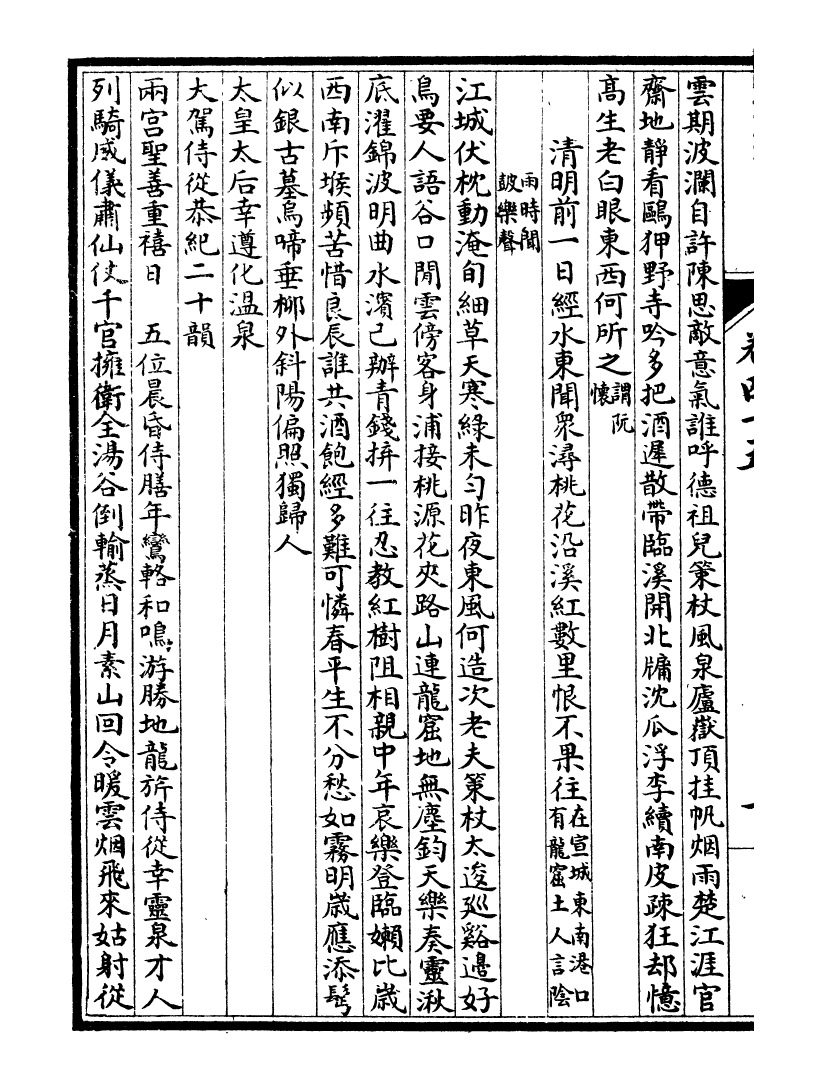 雲期波瀾自許陳思敵意氣誰呼德祖兒策杖風泉廬嶽頂挂帆烟雨楚江涯官
齋地靜看鷗狎野寺吟多把酒遲散帶臨溪開北牖沈瓜浮李續南皮疎狂却憶
高生老白眼東西何所之謂阮懷
清明前一日經水東聞衆潯桃花沿溪紅數里恨不果往在宣城東南港口有龍窟土人言陰
雨時聞鼓樂聲
江城伏枕動淹旬細草天寒綠未勻昨夜東風何造次老夫策杖太逡廵谿邊好
鳥要人語谷口閒雲傍客身浦接桃源花夾路山連龍窟地無塵鈞天樂奏靈湫
底濯錦波明曲水濱已辦青錢拚一往忍教紅樹阻相親中年哀樂登臨嬾比歲
西南斥堠頻苦惜良辰誰共酒飽經多難可憐春平生不分愁如霧明歲應添鬂
似銀古墓烏啼垂柳外斜陽偏照獨歸人
太皇太后幸遵化温泉
大駕侍從恭紀二十韻
兩宮聖善重禧日　五位晨昏侍膳年鸞輅和鳴游勝地龍旂侍從幸靈泉才人
列騎威儀肅仙仗千官擁衛全湯谷倒輸蒸日月素山回令暖雲烟飛來姑射從
卷四十五